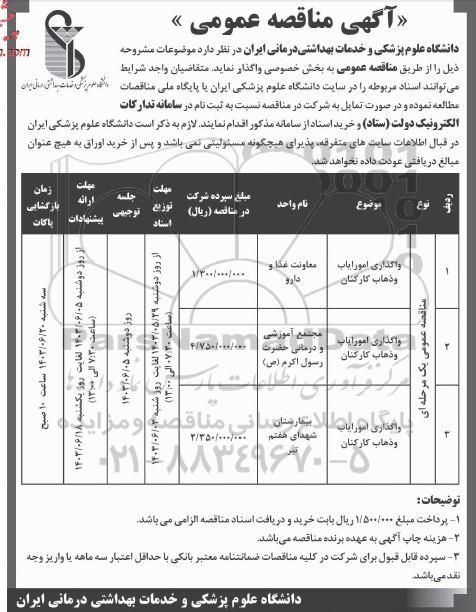 «آگهی مناقصه عمومی »
دانشگاه علوم پزشکی و خدمات بهداشتی درمانی ایران
دانشگاه علوم پزشکی و خدمات بهداشتی‌درمانی ایران در نظر دارد موضوعات مشروحه
ذیل را از طریق مناقصه عمومی به بخش خصوصی واگذار نماید. متقاضیان واجد شرایط
می‌توانند اسناد مربوطه را در سایت دانشگاه علوم پزشکی ایران یا پایگاه ملی مناقصات
مطالعه نموده و در صورت تمایل به شرکت در مناقصه نسبت به ثبت نام در سامانه تدارکات
الکترونیک دولت (ستاد) و خرید اسناد از سامانه مذکور اقدام نمایند. لازم به ذکر است دانشگاه علوم پزشکی ایران
در قبال اطلاعات سایت های متفرقه، پذیرای هیچگونه مسئولیتی نمی باشد و پس از خرید اوراق به هیچ عنوان
مبالغ دریافتی عودت داده نخواهد شد.
ردیف
نوع
موضوع
نام واحد
مبلغ سپرده شرکت در مناقصه (ریال)
مهلت توزیع اسناد
جلسه توجیهی
مهلت ارائه پیشنهادات
زمان بازگشایی پاکات
مناقصه عمومی یک مرحله ای
۱
واگذاری امورایاب وذهاب کارکنان
معاونت غذا و دارو
۱/۳۰۰/۰۰۰/۰۰۰
۲
واگذاری امورایاب وذهاب کارکنان
مجتمع آموزشی و درمانی حضرت رسول اکرم (ص)
۴/۷۵۰/۰۰۰/۰۰۰
۳
واگذاری امورایاب وذهاب کارکنان
بیمارستان شهدای هفتم تیر
۲/۳۵۰/۰۰۰/۰۰۰
از روز دوشنبه ۱۴۰۳/۰۵/۲۹ لغایت روز شنبه ۱۴۰۳/۰۶/۰۳
(ساعت ۷:۳۰ الی ۱۳:۰۰)
روز دوشنبه ۱۴۰۳/۰۶/۰۵
از روز دوشنبه ۱۴۰۳/۰۶/۰۵ لغایت روز یکشنبه ۱۴۰۳/۰۶/۱۸
(ساعت ۷:۳۰ الی ۱۳:۰۰)
سه شنبه ۱۴۰۳/۰۶/۲۰ ساعت ۱۰ صبح
پایگاه اطلاع رسانی مناقصه و مزایده
۰۲۱-۸۸۳۴۹۶۷۰-۵
توضیحات:
۱- پرداخت مبلغ ۱/۵۰۰/۰۰۰ ریال بابت خرید و دریافت اسناد مناقصه الزامی می باشد.
۲- هزینه چاپ آگهی به عهده برنده مناقصه می‌باشد.
۳- سپرده قابل قبول برای شرکت در کلیه مناقصات ضمانتنامه معتبر بانکی با حداقل اعتبار سه ماهه یا واریز وجه
نقد می‌باشد.
دانشگاه علوم پزشکی و خدمات بهداشتی درمانی ایران